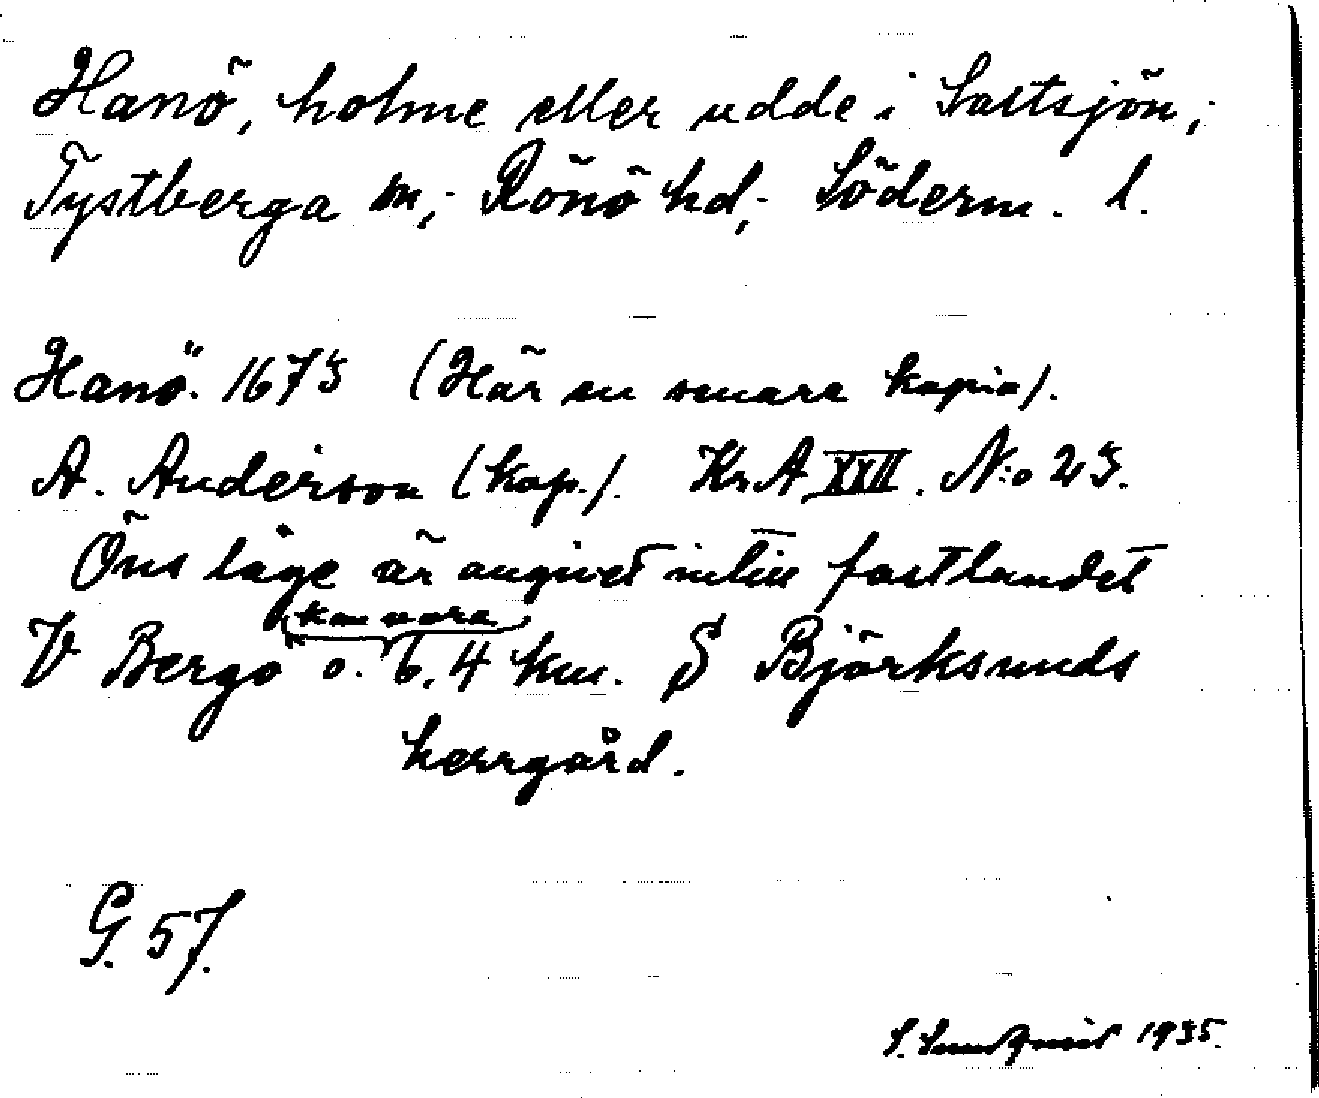 Hanö, holme eller udde i Saltsjön,;
Tystberga sn,; Rönö hd,; Söderm. l.
Hanö. 1673 (Här en senare kopia).
A. Anderson (kop.). Kr.A XXII. N:o 23.
Öns läge är angivet intill fastlandet
kan vara
V Bergö o. 6,4 km. S Björksunds
herrgård.
G. 57.
S. Sundqvist 1935.